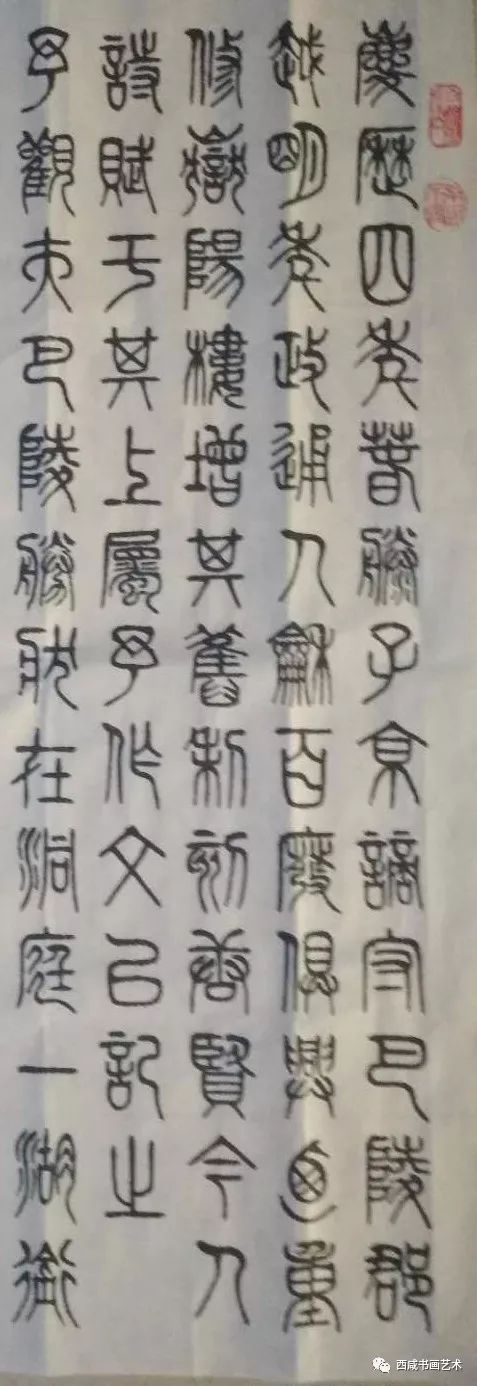 慶歷四年春滕子京謫守巴陵郡
越明年政通人龢百廢俱興廼重
修嶽陽樓增其舊制刻唐賢今人
詩賦于其上屬予作文以記之
予觀夫巴陵勝狀在洞庭一湖銜
西咸书画艺术